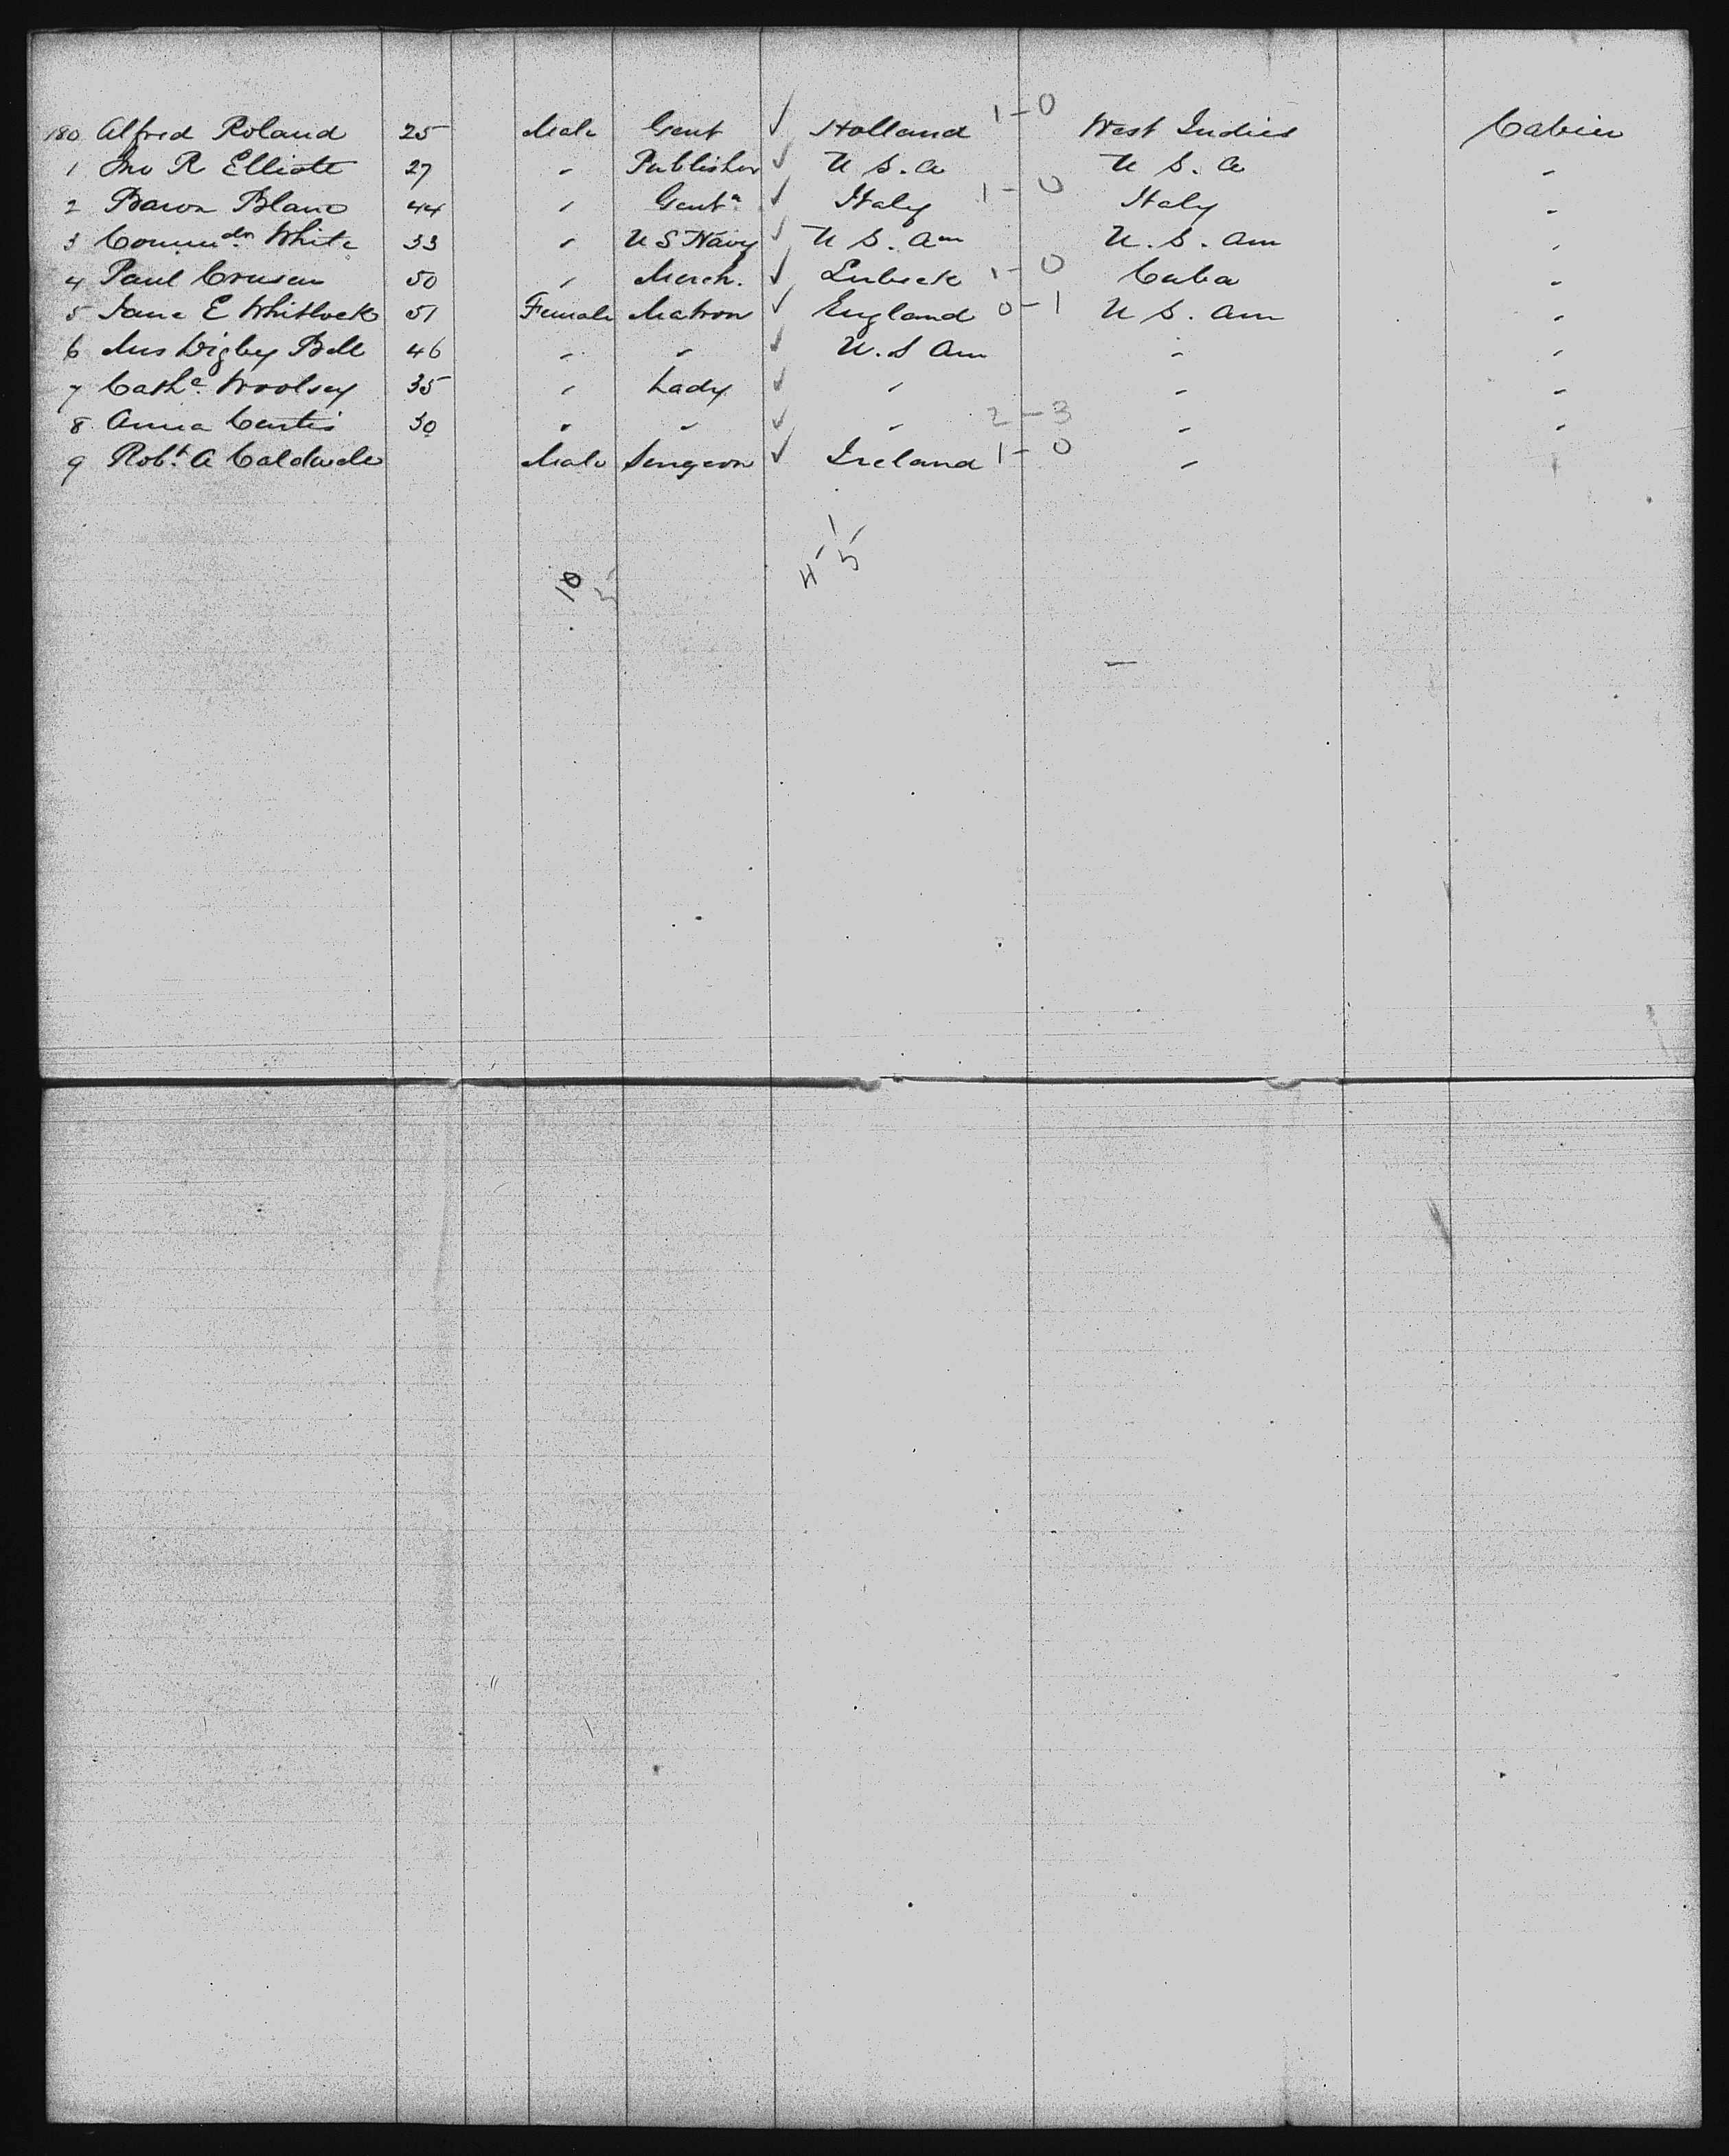 180 Alfred Roland 25 Male Gent ✓ Holland 1-0 West Indies Cabin
1 Jno R Elliott 27 " Publisher ✓ U S. A U S. A "
2 Baron Blanc 44 " Gentn ✓ Italy 1-0 Italy "
3 Commdr White 33 " U S Navy ✓ U S. Am U. S. Am "
4 Paul Crusen 50 " Merch. ✓ Lubeck 1-0 Cuba "
5 Jane E Whitlock 51 Female Matron ✓ England 0-1 U S. Am "
6 Mrs Digby Bell 46 " " ✓ U. S Am " "
7 Cathe Woolsey 35 " Lady ✓ " " "
8 Anna Curtis 30 " " ✓ " 2-3 " "
9 Robt A Caldwell Male Surgeon ✓ Ireland 1-0 " "
10
4 5